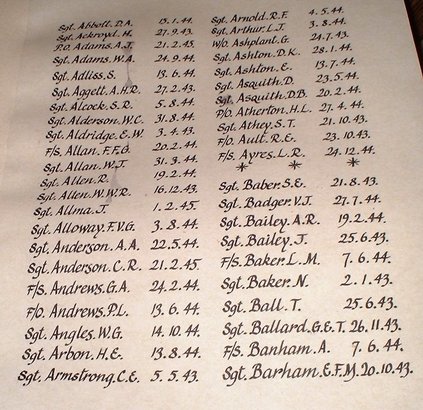 Sgt. Abbott. D.A. 13.1.44.
Sgt. Ackroyd. H. 27.9.43.
P.O. Adams. A.J. 21.2.45.
Sgt. Adams. W.A. 24.9.44.
Sgt. Adliss. S. 13.6.44.
Sgt. Aggett. A.H.R. 27.2.43.
Sgt. Alcock. S.R. 5.8.44.
Sgt. Alderson. W.C. 31.8.44.
Sgt. Aldridge. E.W. 3.4.43.
F/S. Allan. F.F.G. 20.2.44.
Sgt. Allan. W.J. 31.3.44.
Sgt. Allen. R. 19.2.44.
Sgt. Allen. W.W.R. 16.12.43.
Sgt. Allma. J. 1.2.45.
Sgt. Alloway. F.V.G. 3.8.44.
Sgt. Anderson. A.A. 22.5.44.
Sgt. Anderson. C.R. 21.2.45.
F/S. Andrews. G.A. 24.2.44.
F/O. Andrews. P.L. 13.6.44.
Sgt. Angles. W.G. 14.10.44.
Sgt. Arbon. H.E. 13.8.44.
Sgt. Armstrong. C.E. 5.5.43.
Sgt. Arnold. R.F. 4.5.44.
Sgt. Arthur. L.J. 3.8.44.
W/O. Ashplant. G. 24.7.43.
Sgt. Ashton. D.K. 28.1.44.
Sgt. Ashton. E. 13.7.44.
Sgt. Asquith. D. 23.5.44.
Sgt. Asquith. D.B. 20.2.44.
P/O. Atherton. H.L. 27.4.44.
Sgt. Athey. S.T. 21.10.43.
F/O. Ault. R.E. 23.10.43.
F/S. Ayres. L.R. 24.12.44.
* * *
Sgt. Baber. S.E. 21.8.43.
Sgt. Badger. V.J. 27.7.44.
Sgt. Bailey. A.R. 19.2.44.
Sgt. Bailey. J. 25.6.43.
F/S. Baker. L.M. 7.6.44.
Sgt. Baker. N. 2.1.43.
Sgt. Ball. T. 25.6.43.
Sgt. Ballard. G.E.T. 26.11.43.
F/S. Banham. A. 7.6.44.
Sgt. Barham. E.F.M. 20.10.43.